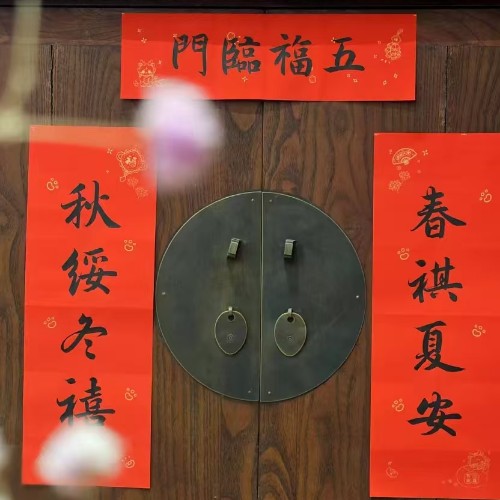 五福臨門
春祺夏安
秋绥冬禧